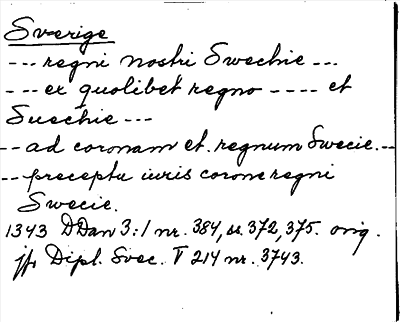 Sverige
--- regni nostri Swechie ---
--- ex quolibet regno ---- et
Suechie ---
-- ad coronam et regnum Swecie. --
-- precepta iuris corone regni
Swecie.
1343 DDan 3:1 nr. 384, ss. 372, 375. orig.
jfr Dipl. Svec. V 214 nr. 3743.